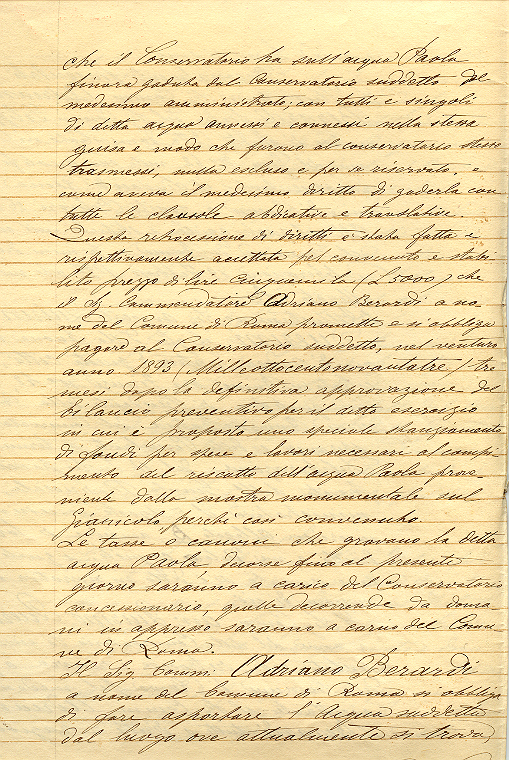 che il Conservatorio ha sull'acqua Paola
finora goduta dal Conservatorio suddetto e dal
medesimo amministrato; con tutti e singoli
di detta acqua annessi e connessi nella stessa
guisa e modo che furono al conservatorio stesso
trasmessi, nulla escluso e per se riservato, e
come aveva il medesimo diritto di goderla con
tutte le clausole abdicative e translative.
Questa retrocessione di diritti è stata fatta e
rispettivamente accettata pel convenuto e stabi-
lito prezzo di lire cinquemila (L 5000) che
il Sig. Commendatore Adriano Berardi a no-
me del Comune di Roma promette e si obbliga
pagare al Conservatorio suddetto, nel venturo
anno 1893 / Milleottocentonovantatre / tre
mesi dopo la definitiva approvazione del
bilancio preventivo per il detto esercizio
in cui è proposto uno speciale stanziamento
di fondi per spese e lavori necessari al compi-
mento del riscatto dell'acqua Paola prove-
niente dalla mostra monumentale sul
Gianicolo perchè così convenuto.
Le tasse e canoni che gravano la detta
acqua Paola decorse fino al presente
giorno saranno a carico del Conservatorio
concessionario, quelle decorrende da doma-
ni in appresso saranno a carico del Comu-
ne di Roma.
Il Sig Comm: Adriano Berardi
a nome del Comune di Roma si obbliga
di fare asportare l'acqua suddetta
dal luogo ove attualmente si trova,